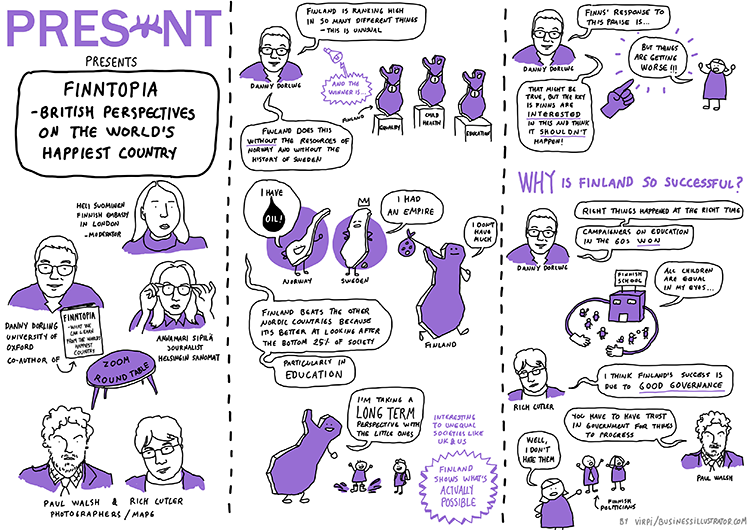 PRESENT
PRESENTS
FINNTOPIA
-BRITISH PERSPECTIVES
ON THE WORLD'S
HAPPIEST COUNTRY
HEII SUOMINEN
FINNISH EMBASSY
IN LONDON
-MODERATOR
DANNY DORLING
UNIVERSITY OF
OXFORD
CO-AUTHOR OF
FINNTOPIA
-WHAT WE
CAN LEARN
FROM THE WORLD'S
HAPPIEST
COUNTRY
ANNAMARI SIPILÄ
JOURNALIST
HELSINGIN SANOMAT
ZOOM
ROUND TABLE
PAUL WALSH & RICH CUTLER
PHOTOGRAPHERS / MAPS
FINLAND IS RANKING HIGH
IN SO MANY DIFFERENT THINGS
- THIS IS UNUSUAL
DANNY DORLING
AND THE
WINNER IS...
FINLAND
EQUALITY
CHILD
HEALTH
EDUCATION
FINLAND DOES THIS
WITHOUT THE RESOURCES OF
NORWAY AND WITHOUT THE
HISTORY OF SWEDEN
I HAVE
OIL!
I HAD
AN EMPIRE
I DON'T
HAVE
MUCH
NORWAY
SWEDEN
FINLAND
FINLAND BEATS THE OTHER
NORDIC COUNTRIES BECAUSE
IT'S BETTER AT LOOKING AFTER
THE BOTTOM 25% OF SOCIETY
PARTICULARLY IN
EDUCATION
I'M TAKING A
LONG TERM
PERSPECTIVE WITH
THE LITTLE ONES
INTERESTING
TO UNEQUAL
SOCIETIES LIKE
UK & US
FINLAND
SHOWS WHAT'S
ACTUALLY
POSSIBLE
FINNS' RESPONSE TO
THIS PRAISE IS...
DANNY DORLING
BUT THINGS
ARE GETTING
WORSE!!!
THAT MIGHT BE
TRUE, BUT THE KEY
IS FINNS ARE
INTERESTED
IN THIS AND THINK
IT SHOULDN'T
HAPPEN!
WHY IS FINLAND SO SUCCESSFUL?
RIGHT THINGS HAPPENED AT THE RIGHT TIME
CAMPAIGNERS ON EDUCATION
IN THE 60S WON
DANNY DORLING
FINNISH
SCHOOL
ALL CHILDREN
ARE EQUAL
IN MY EYES...
I THINK FINLAND'S SUCCESS IS
DUE TO GOOD GOVERNANCE
RICH CUTLER
YOU HAVE TO HAVE TRUST
IN GOVERNMENT FOR THINGS
TO PROGRESS
PAUL WALSH
WELL,
I DON'T
HATE THEM
FINNISH
POLITICIANS
BY VIRPI/BUSINESSILLUSTRATOR.COM